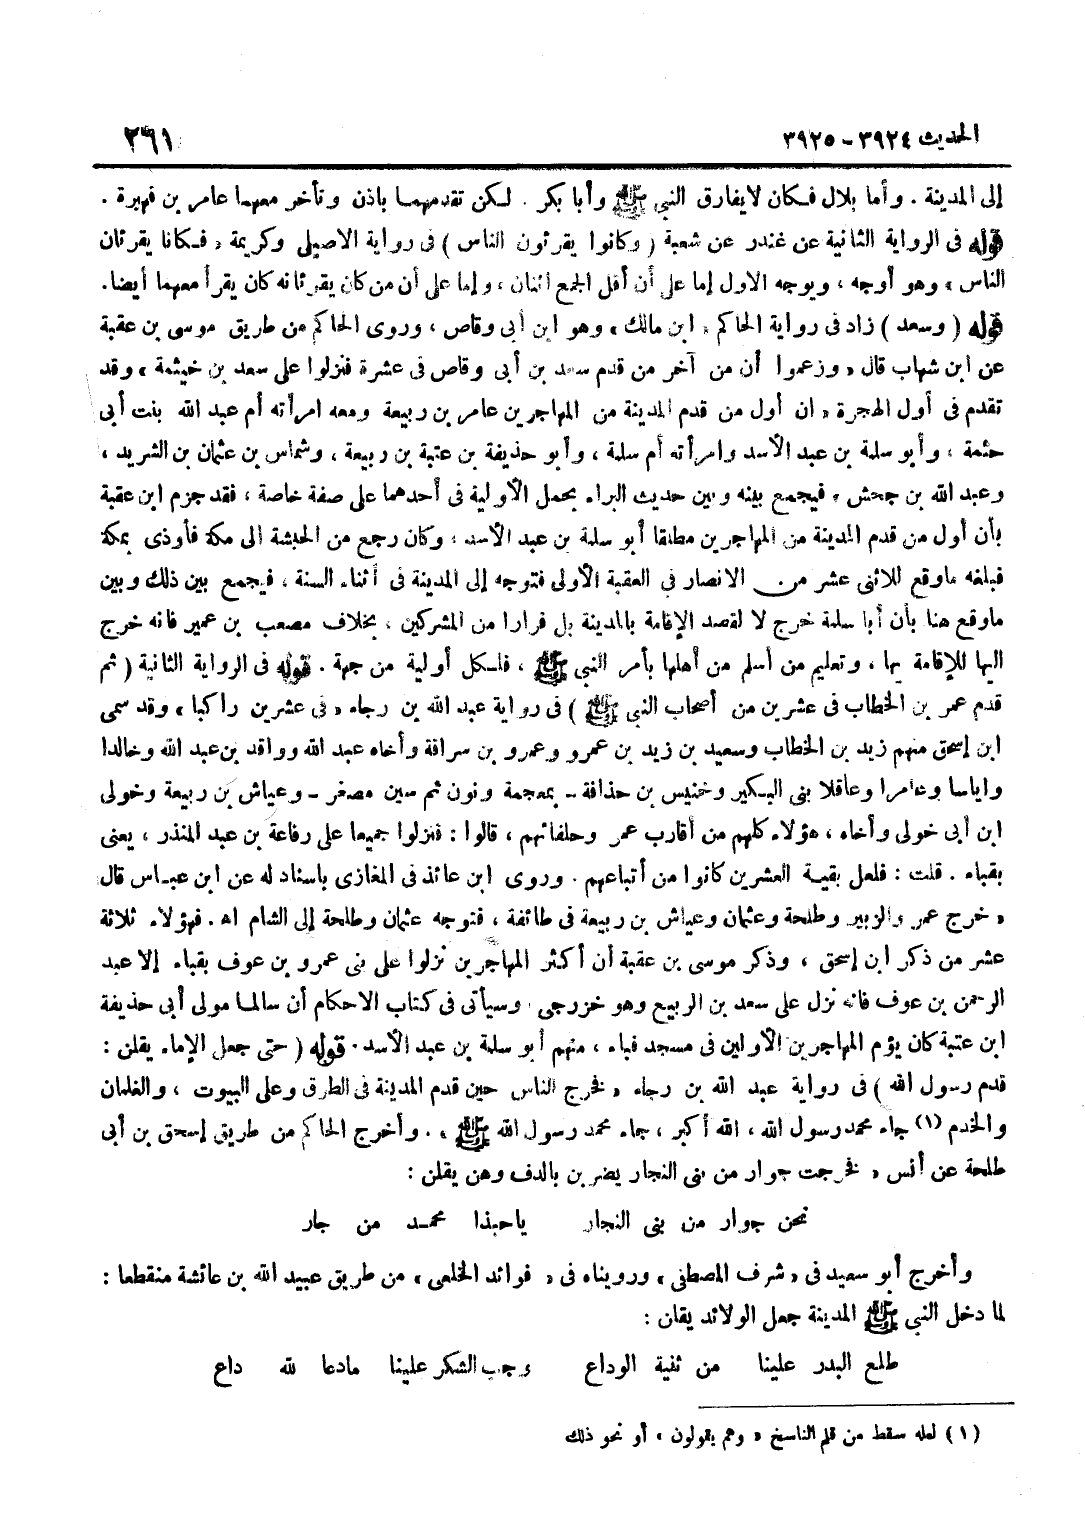 الحديث ٣٩٢٤ - ٣٩٢٥
٢٦١
إلى المدينة . وأما بلال فكان لايفارق النبي ﷺ وأبا بكر . لكن تقدمهما باذن وتأخر معهما عامر بن فهيرة .
قوله فى الرواية الثانية عن غندر عن شعبة ( وكانوا يقرئون الناس ) فى رواية الاصيلى وكريمة « فكانا يقرئان
الناس » وهو أوجه ، ويوجه الاول إما على أن أقل الجمع اثنان ، وإما على أن من كان يقرئانه كان يقرأ معهما أيضا .
قوله ( وسعد ) زاد فى رواية الحاكم « ابن مالك » وهو ابن أبى وقاص ، وروى الحاكم من طريق موسى بن عقبة
عن ابن شهاب قال « وزعموا أن من آخر من قدم سعد بن أبى وقاص فى عشرة فنزلوا على سعد بن خيثمة » وقد
تقدم فى أول الهجرة « ان أول من قدم المدينة من المهاجرين عامر بن ربيعة ومعه امرأته أم عبد الله بنت أبى
حثمة ، وأبو سلمة بن عبد الأسد وامرأته أم سلمة ، وأبو حذيفة بن عتبة بن ربيعة ، وشماس بن عثمان بن الشريد ،
وعبد الله بن جحش » فيجمع بينه وبين حديث البراء بحمل الأولية فى أحدهما على صفة خاصة ، فقد جزم ابن عقبة
بأن أول من قدم المدينة من المهاجرين مطلقا أبو سلمة بن عبد الأسد ، وكان رجع من الحبشة الى مكة فأوذى بمكة
فبلغه ماوقع للاثنى عشر من الانصار فى العقبة الأولى فتوجه إلى المدينة فى أثناء السنة ، فيجمع بين ذلك وبين
ماوقع هنا بأن أبا سلمة خرج لا لقصد الإقامة بالمدينة بل فرارا من المشركين ، بخلاف مصعب بن عمير فانه خرج
اليها للإقامة بها ، وتعليم من أسلم من أهلها بأمر النبي ﷺ ، فلكل أولية من جهة . قوله فى الرواية الثانية ( ثم
قدم عمر بن الخطاب فى عشرين من أصحاب النبي ﷺ ) فى رواية عبد الله بن رجاء « فى عشرين راكبا » وقد سمى
ابن إسحق منهم زيد بن الخطاب وسعيد بن زيد بن عمرو وعمرو بن سراقة وأخاه عبد الله وواقد بن عبد الله وخالدا
واياسا وعامرا وعاقلا بنى البكير وخنيس بن حذافة - بمعجمة ونون ثم سين مصغر - وعياش بن ربيعة وخولى
ابن أبى خولى وأخاه ، هؤلاء كلهم من أقارب عمر وحلفائهم ، قالوا : فنزلوا جميعا على رفاعة بن عبد المنذر ، يعنى
بقباء . قلت : فلعل بقية العشرين كانوا من أتباعهم . وروى ابن عائذ فى المغازى باسناد له عن ابن عباس قال
« خرج عمر والزبير وطلحة وعثمان وعياش بن ربيعة فى طائفة ، فتوجه عثمان وطلحة إلى الشام اه . فهؤلاء ثلاثة
عشر من ذكر ابن إسحق ، وذكر موسى بن عقبة أن أكثر المهاجرين نزلوا على بنى عمرو بن عوف بقباء إلا عبد
الرحمن بن عوف فانه نزل على سعد بن الربيع وهو خزرجى . وسيأتى فى كتاب الاحكام أن سالما مولى أبى حذيفة
ابن عتبة كان يؤم المهاجرين الأولين فى مسجد قباء ، منهم أبو سلمة بن عبد الأسد . قوله ( حتى جعل الإماء يقلن :
قدم رسول الله ) فى رواية عبد الله بن رجاء « فخرج الناس حين قدم المدينة فى الطرق وعلى البيوت ، والغلمان
والخدم (١) جاء محمد رسول الله ، الله أكبر ، جاء محمد رسول الله ﷺ » . وأخرج الحاكم من طريق إسحق بن أبى
طلحة عن أنس « فخرجت جوار من بنى النجار يضربن بالدف وهن يقلن :
نحن جوار من بنى النجار ياحبذا محمد من جار
وأخرج أبو سعيد فى « شرف المصطفى » ورويناه فى « فوائد الخلعى » من طريق عبيد الله بن عائشة منقطعا :
لما دخل النبي ﷺ المدينة جعل الولائد يقلن :
طلع البدر علينا من ثنية الوداع وجب الشكر علينا مادعا لله داع
(١) لعله سقط من قلم الناسخ « وهم يقولون » أو نحو ذلك